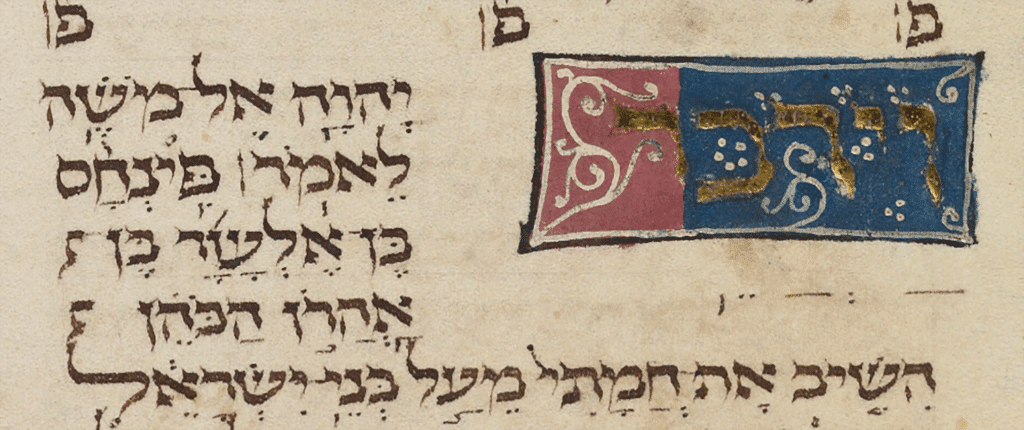 פ פ פ
וַיְדַבֵּר
יְהוָה אֶל־מֹשֶׁה
לֵּאמֹר׃ פִּינְחָס
בֶּן־אֶלְעָזָר בֶּן־
אַהֲרֹן הַכֹּהֵן
הֵשִׁיב אֶת־חֲמָתִי מֵעַל בְּנֵי־יִשְׂרָאֵל